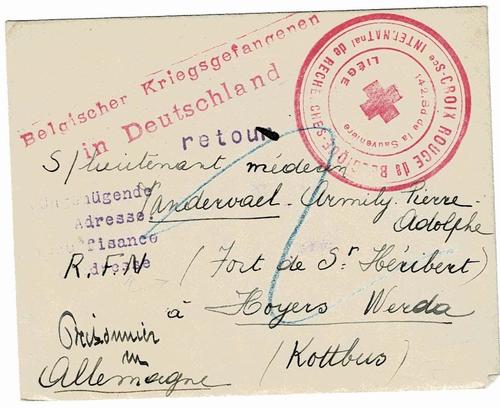 Belgischer Kriegsgefangenen
in Deutschland
CROIX ROUGE de BELGIQUE
Sce INTERNATnal de RECHERCHES
LIÉGE
14.2.Bd de la Sauvenière
retour
S/lieutenant médecin
Ungenügende
Adresse
Insuffisance
d'adresse
Vandervael Armily-Pierre-
Adolphe
R.F.N (Fort de St Héribert)
à Hoyers Werda
(Kottbus)
Prisonnier
en
Allemagne